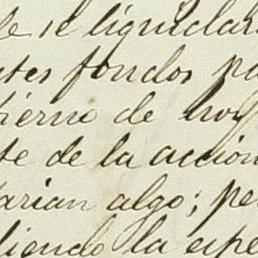 de se liquidar
tes fondos pa
ierno de hoy
te de la acción
arian algo; pe
iendo la espe